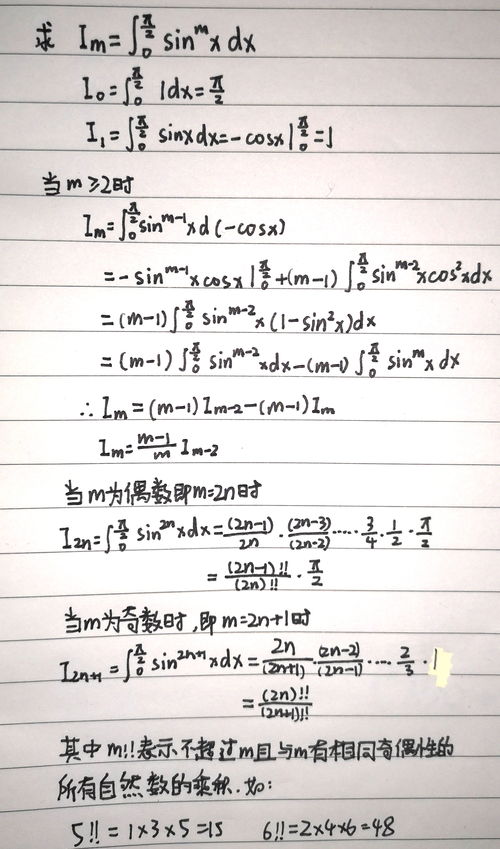 求 Iₘ=∫₀^{π/2} sinᵐx dx
I₀=∫₀^{π/2} 1dx=π/2
I₁=∫₀^{π/2} sinxdx=-cosx|₀^{π/2}=1
当m≥2时
Iₘ=∫₀^{π/2}sin^{m-1}xd(-cosx)
=-sin^{m-1}xcosx|₀^{π/2}+(m-1)∫₀^{π/2}sin^{m-2}xcos²xdx
=(m-1)∫₀^{π/2}sin^{m-2}x(1-sin²x)dx
=(m-1)∫₀^{π/2}sin^{m-2}xdx-(m-1)∫₀^{π/2}sinᵐxdx
∴Iₘ=(m-1)I_{m-2}-(m-1)Iₘ
Iₘ=\frac{m-1}{m}I_{m-2}
当m为偶数即m=2n时
I_{2n}=∫₀^{π/2}sin^{2n}xdx=\frac{(2n-1)}{2n}·\frac{(2n-3)}{(2n-2)}·····\frac{3}{4}·\frac{1}{2}·\frac{π}{2}
=\frac{(2n-1)!!}{(2n)!!}·\frac{π}{2}
当m为奇数时,即m=2n+1时
I_{2n+1}=∫₀^{π/2}sin^{2n+1}xdx=\frac{2n}{(2n+1)}·\frac{(2n-2)}{(2n-1)}····\frac{2}{3}·1
=\frac{(2n)!!}{(2n+1)!!}
其中m!!表示不超过m且与m有相同奇偶性的
所有自然数的乘积.如:
5!!=1×3×5=15 6!!=2×4×6=48